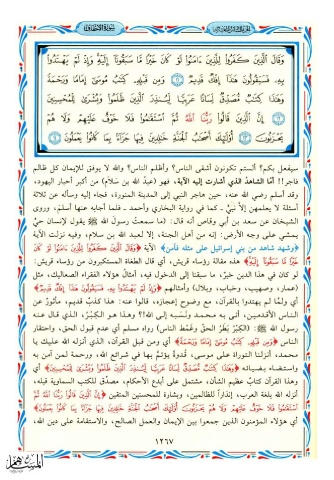 سورة الأحقاف
وَقَالَ الَّذِينَ كَفَرُوا لِلَّذِينَ ءَامَنُوا لَوْ كَانَ خَيْرًا مَّا سَبَقُونَا إِلَيْهِ وَإِذْ لَمْ يَهْتَدُوا
بِهِ فَسَيَقُولُونَ هَٰذَا إِفْكٌ قَدِيمٌ ١١ وَمِن قَبْلِهِ كِتَٰبُ مُوسَىٰ إِمَامًا وَرَحْمَةً
وَهَٰذَا كِتَٰبٌ مُّصَدِّقٌ لِّسَانًا عَرَبِيًّا لِّيُنذِرَ الَّذِينَ ظَلَمُوا وَبُشْرَىٰ لِلْمُحْسِنِينَ
١٢ إِنَّ الَّذِينَ قَالُوا رَبُّنَا اللَّهُ ثُمَّ اسْتَقَٰمُوا فَلَا خَوْفٌ عَلَيْهِمْ وَلَا هُمْ
يَحْزَنُونَ ١٣ أُولَٰئِكَ أَصْحَٰبُ الْجَنَّةِ خَٰلِدِينَ فِيهَا جَزَاءً بِمَا كَانُوا يَعْمَلُونَ ١٤
سيفعل بكم؟ ألستم تكونون أشقى الناس؟ وأظلم الناس؟ والله لا يوفق للإيمان كل ظالم
فاجر! أمَّا الشاهدُ الذي أشارت إليه الآية، فهو (عبدُ الله بن سلام) من أكبر أحبار اليهود،
وقد أسلم رضي الله عنه، حين هاجر النبي إلى المدينة المنورة، فجاء إليه وسأله عن ثلاثة
أسئلة لا يعلمهن إلاَّ نبيٌّ ـ كما في رواية البخاري وأحمد ـ فلما أجابه عنها أسلم، وروى
الشيخان عن سعد بن أبي وقاص أنه قال: (ما سمعتُ رسول الله ﷺ يقول لإنسانٍ حيٍّ
يمشي على وجه الأرض: إنه من أهل الجنة، إلا لعبد الله بن سلام، وفيه نزلت الآية
﴿وشهد شاهد من بني إسرائيل على مثله فآمن﴾ الآية ﴿وَقَالَ الَّذِينَ كَفَرُوا لِلَّذِينَ ءَامَنُوا لَوْ كَانَ
خَيْرًا مَّا سَبَقُونَا إِلَيْهِ﴾ هذه مقالة رؤساء قريش، أي قال الطغاة المستكبرون من رؤساء قريش:
لو كان في هذا الدين خيرٌ، ما سبقنا إلى الدخول فيه، أمثالُ هؤلاء الفقراء الصعاليك، مثل
(عمار، وصهيب، وخباب، وبلال) وأمثالهم ﴿وَإِذْ لَمْ يَهْتَدُوا بِهِ فَسَيَقُولُونَ هَٰذَا إِفْكٌ قَدِيمٌ﴾
أي ولمَّا لم يهتدوا بالقرآن، مع وضوح إعجازه، قالوا عنه: هذا كذبٌ قديم، مأثورٌ عن
الناس الأقدمين، أتى به محمد ونَسَبه إلى الله!! وهذا هو الكِبْرُ، الذي قال عنه
رسول الله ﷺ: (الكِبْرُ بَطَرُ الحقِّ وغَمْطُ الناس) رواه مسلم أي عدم قبول الحق، واحتقار
الناس ﴿وَمِن قَبْلِهِ كِتَٰبُ مُوسَىٰ إِمَامًا وَرَحْمَةً﴾ أي ومن قبل القرآن، الذي أنزله الله عليك يا
محمد، أنزلنا التوراة على موسى، قدوةً يؤتمُّ بها في شرائع الله، ورحمة لمن آمن به
واستضاء بضيائه ﴿وَهَٰذَا كِتَٰبٌ مُّصَدِّقٌ لِّسَانًا عَرَبِيًّا لِّيُنذِرَ الَّذِينَ ظَلَمُوا وَبُشْرَىٰ لِلْمُحْسِنِينَ﴾ أي
وهذا القرآن كتابٌ عظيم الشأن، مشتمل على أبدع الأحكام، مصدِّقٌ للكتب السماوية قبله،
أنزله الله بلغة العرب، إنذاراً للظالمين، وبشارة للمحسنين المتقين ﴿إِنَّ الَّذِينَ قَالُوا رَبُّنَا اللَّهُ ثُمَّ
اسْتَقَٰمُوا فَلَا خَوْفٌ عَلَيْهِمْ وَلَا هُمْ يَحْزَنُونَ أُولَٰئِكَ أَصْحَٰبُ الْجَنَّةِ خَٰلِدِينَ فِيهَا جَزَاءً بِمَا كَانُوا يَعْمَلُونَ﴾
أي هؤلاء المؤمنون الذين جمعوا بين الإيمان والعمل الصالح، والاستقامة على دين الله،
١٢٦٧